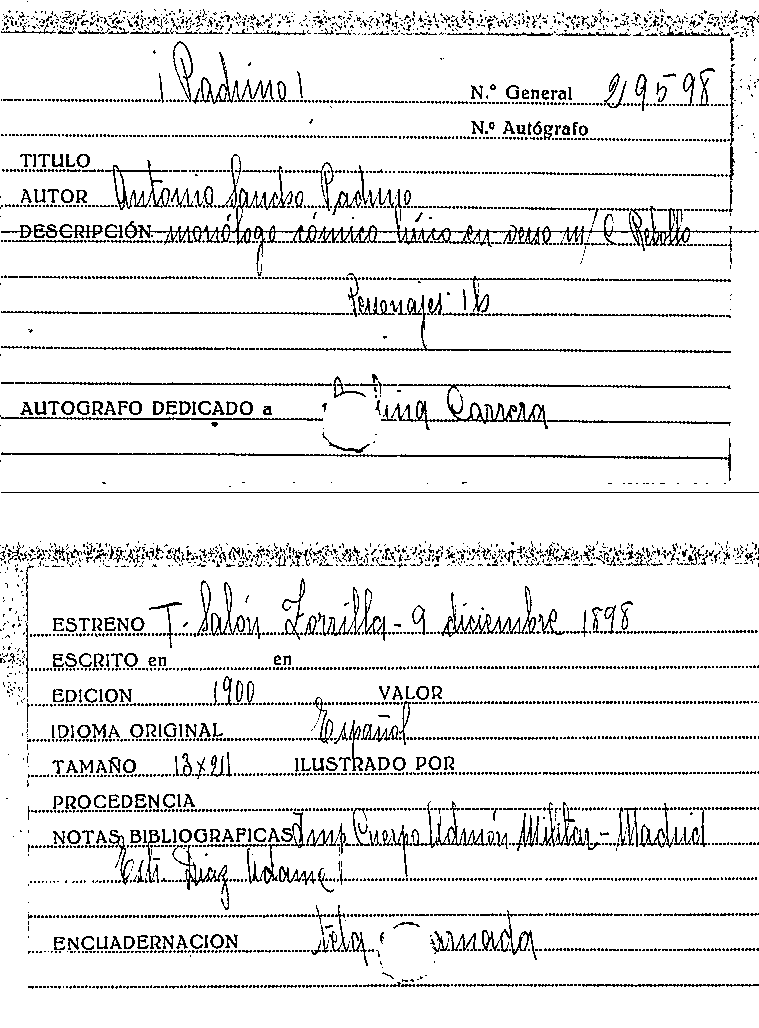 ¡Padrino!
N.º General 21598
N.º Autógrafo
TITULO
AUTOR Antonio Sancho Padrino
DESCRIPCIÓN monólogo cómico lírico en verso m/ C Rebollo
Personajes 1
AUTOGRAFO DEDICADO a Carrera
ESTRENO T. Salón Zorrilla - 9 diciembre 1898
ESCRITO en en
EDICION 1900 VALOR
IDIOMA ORIGINAL Español
TAMAÑO 13x21 ILUSTRADO POR
PROCEDENCIA
NOTAS BIBLIOGRAFICAS Imp Cuerpo Admón Militar - Madrid
Estr. Diaz Adame
ENCUADERNACION tela